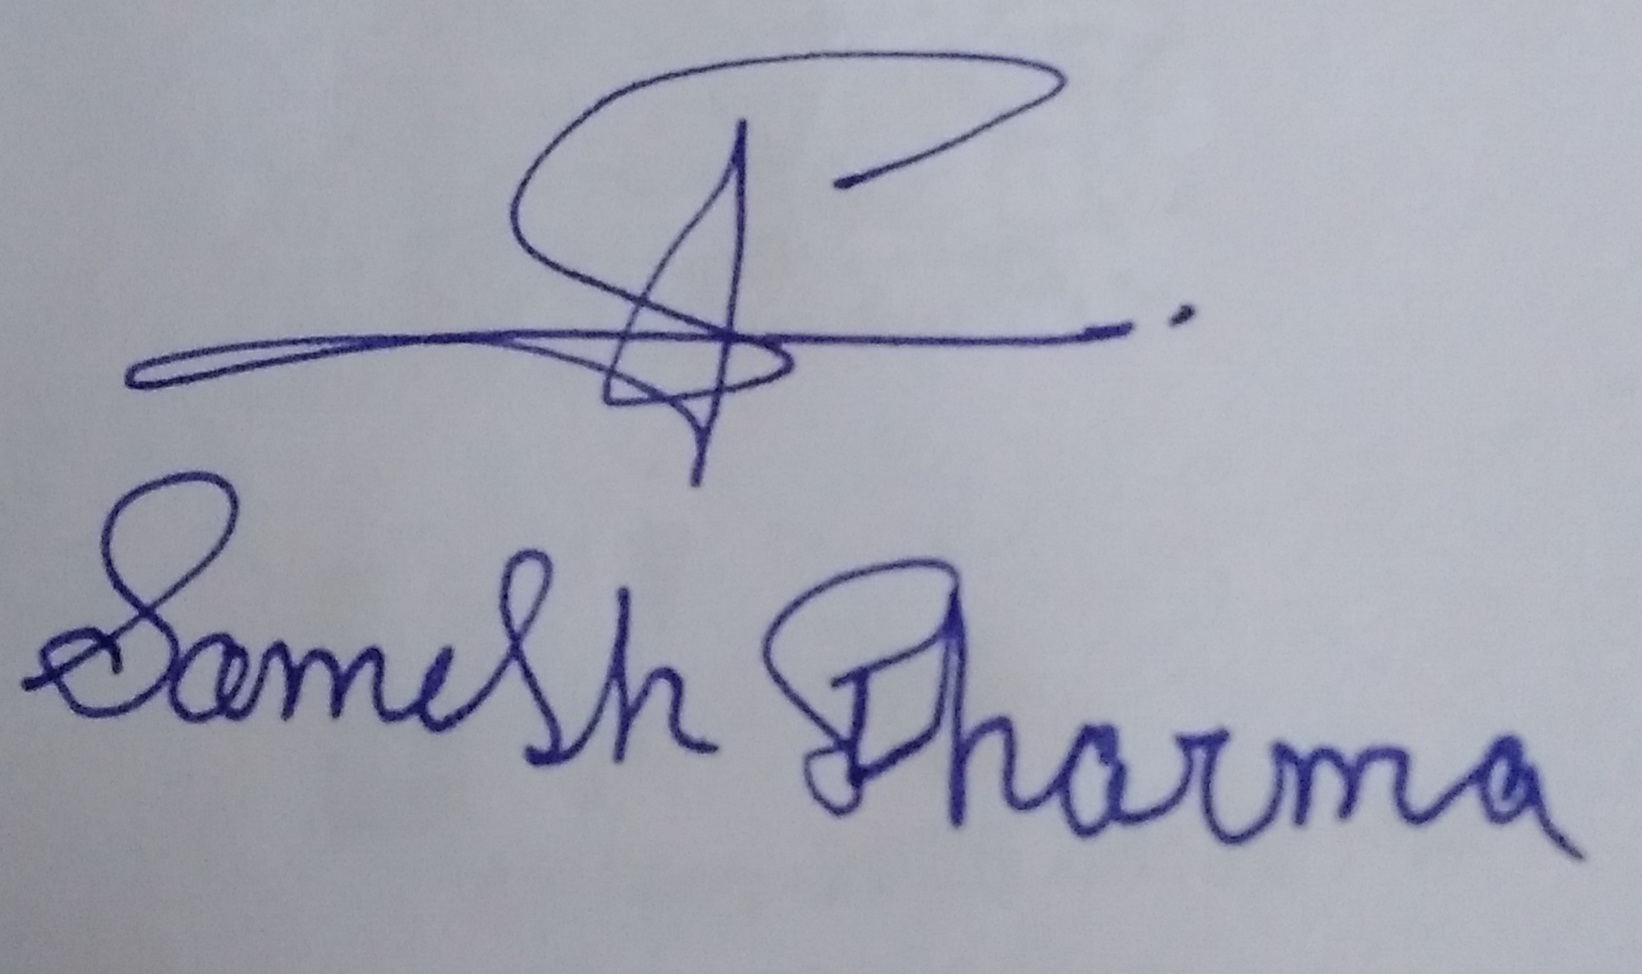 Somesh Sharma